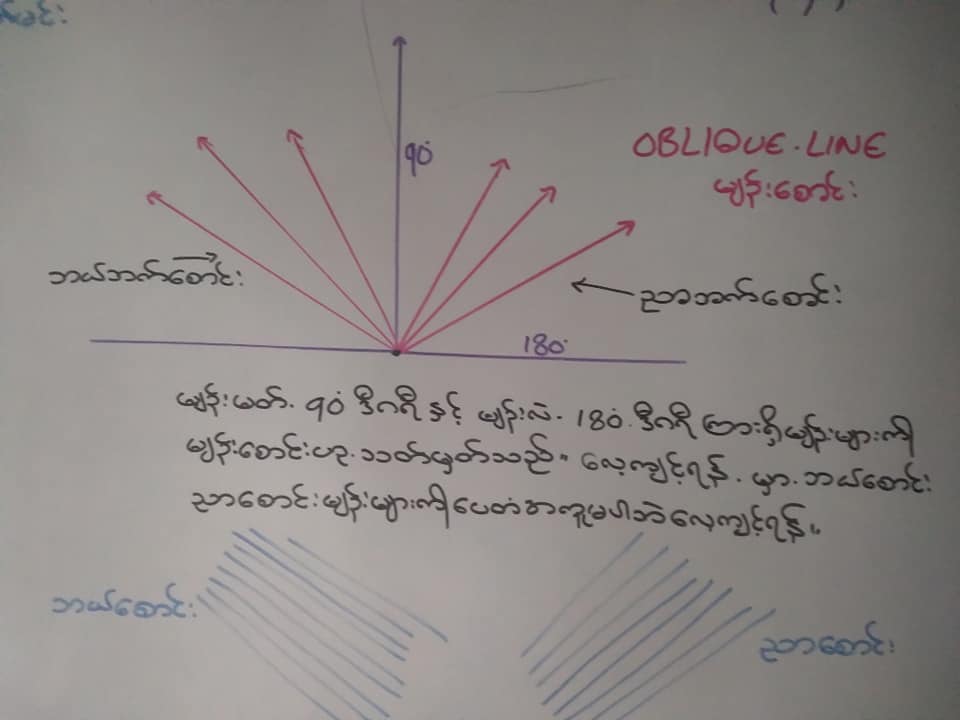 90°
OBLIQUE.LINE
မျဉ်းစောင်း
ဘယ်ဘက်စောင်း
ညာဘက်စောင်း
180°
မျဉ်းမတ်. 90° ဒီဂရီ နှင့် မျဉ်းလဲ. 180° ဒီဂရီ ကြားရှိမျဉ်းများကို
မျဉ်းစောင်းဟု.သတ်မှတ်သည်။ လေ့ကျင့်ရန်.မှာ.ဘယ်စောင်း
ညာစောင်းမျဉ်းများကိုပေတံအကူမပါဘဲလေ့ကျင့်ရန်။
ဘယ်စောင်း
ညာစောင်း